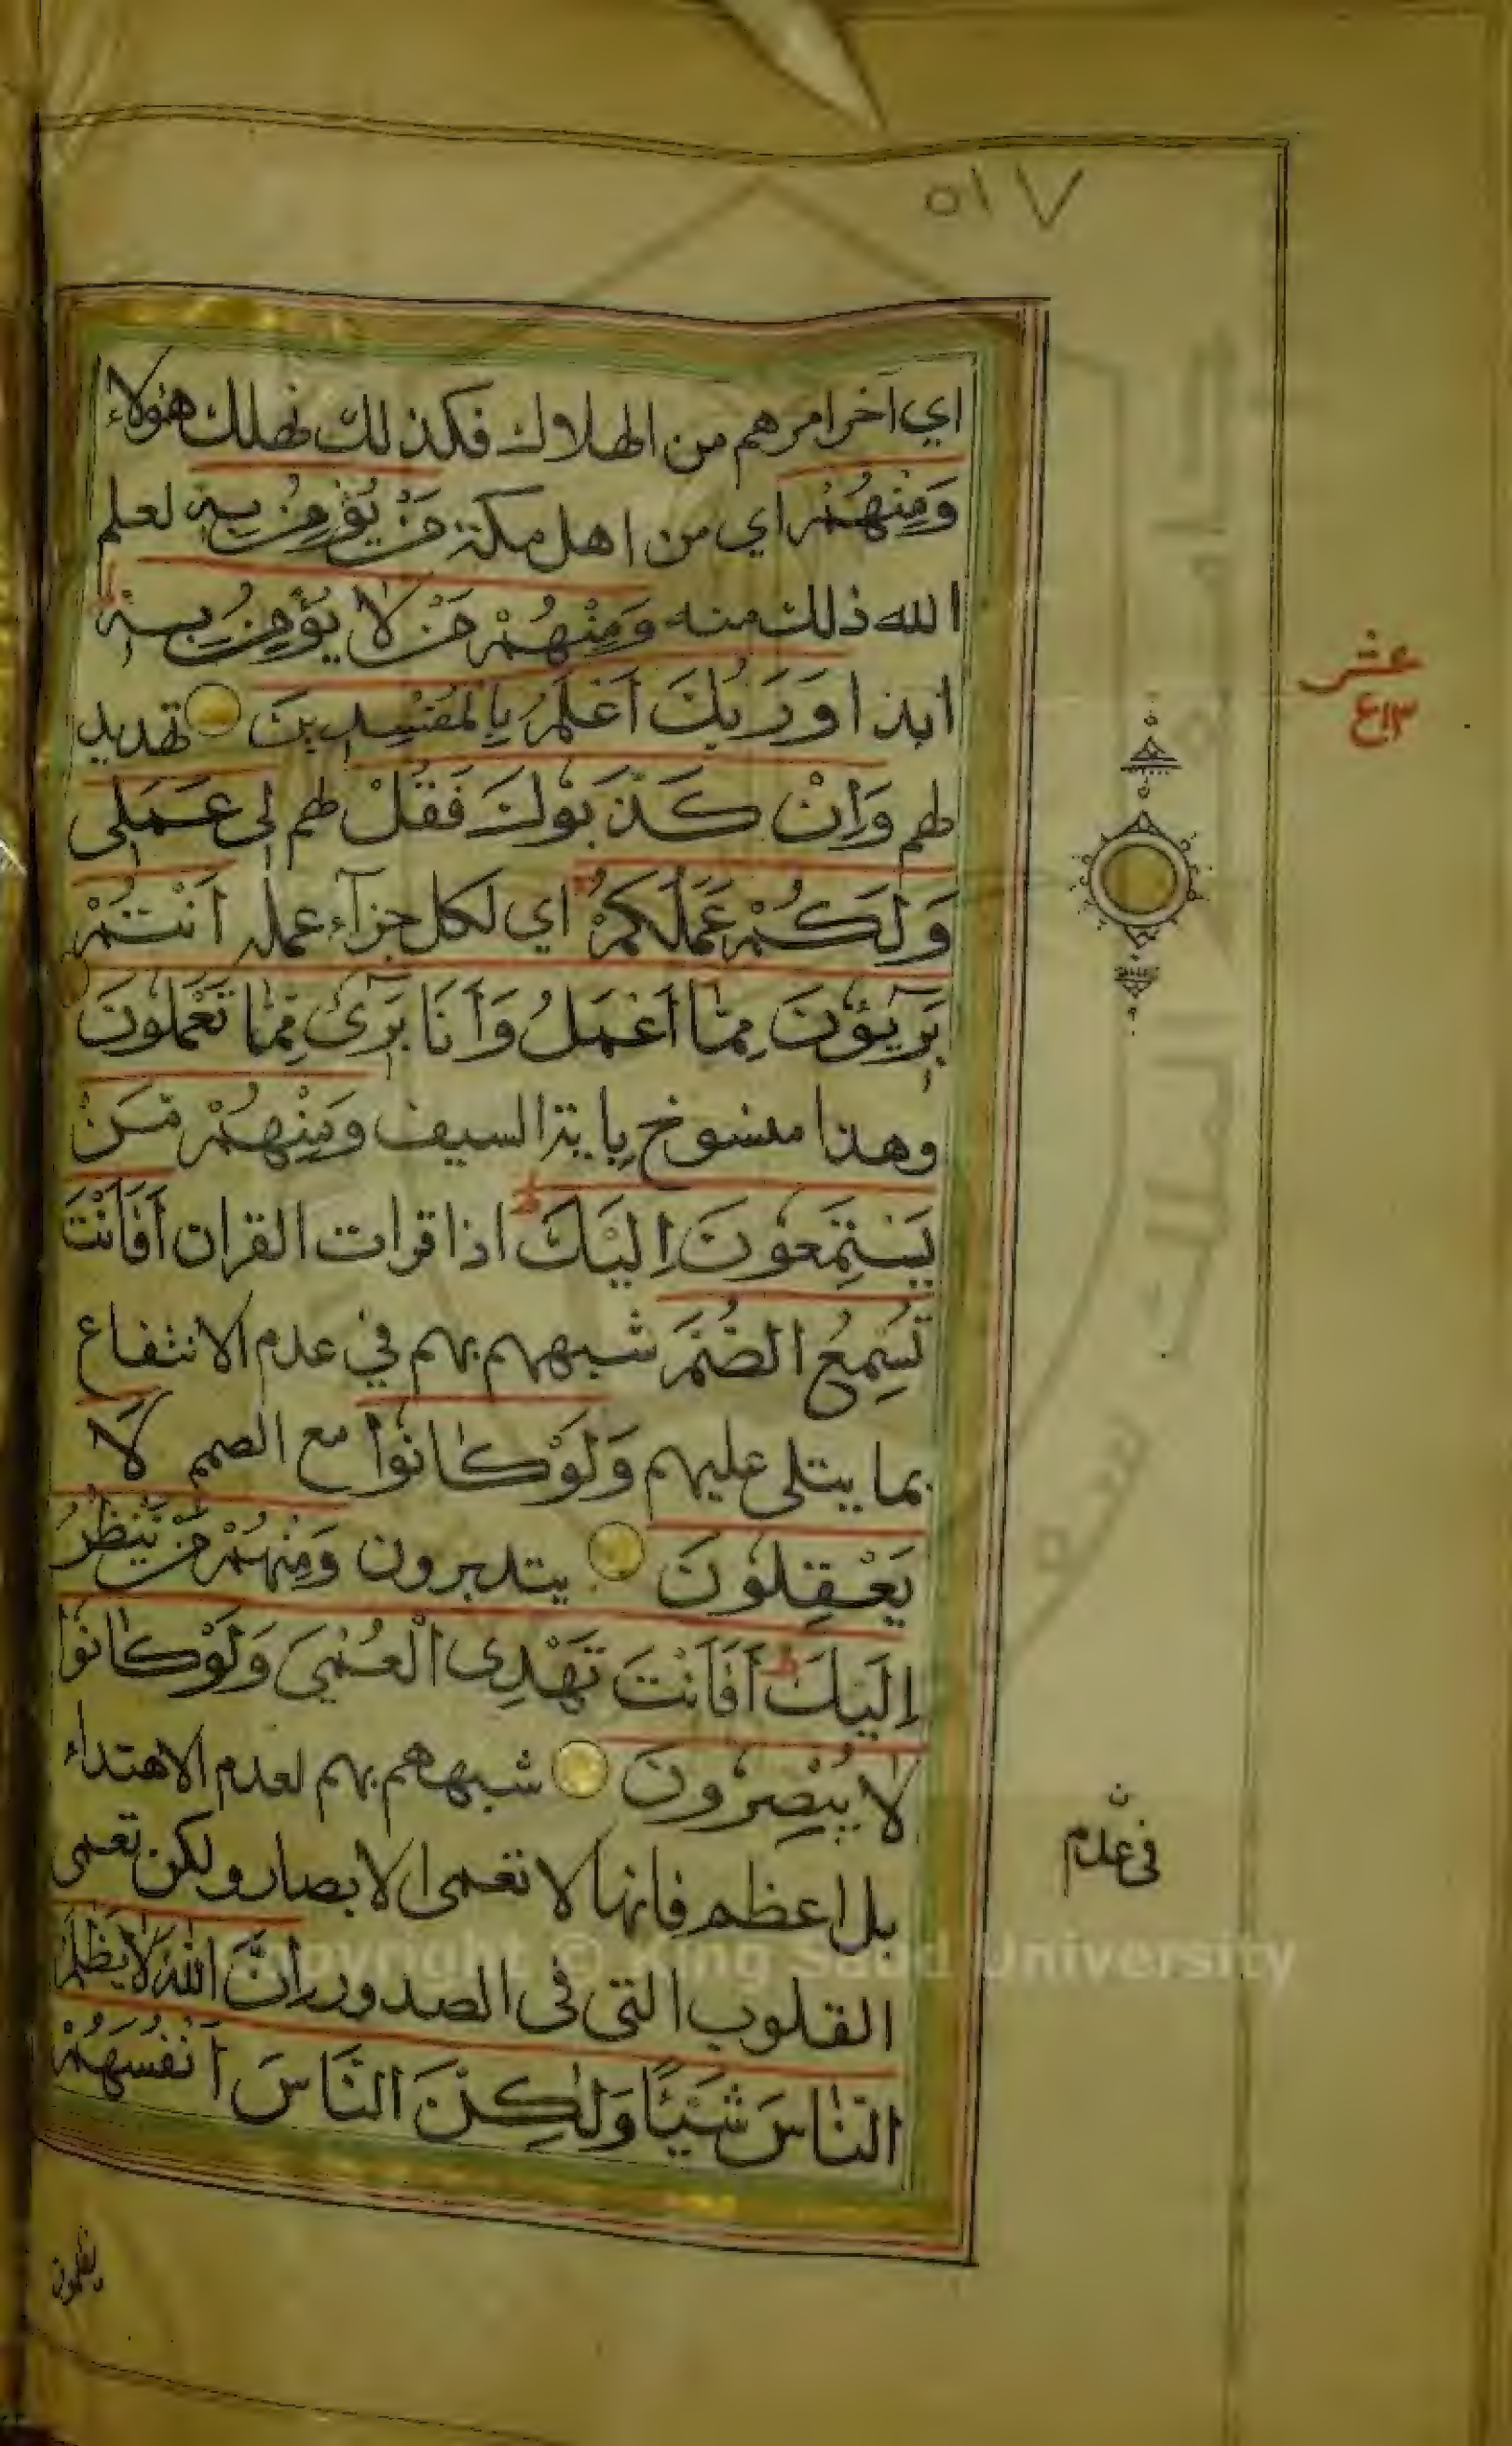 ٥١٧
اي آخر امرهم من الهلاك فكذلك نهلك هٰؤلاء
وَمِنْهُمْ اي من اهل مكة مَنْ يُؤْمِنُ بِهٖ لعلم
الله ذلك منه وَمِنْهُمْ مَنْ لَا يُؤْمِنُ بِهٖ ط
ابدا وَرَبُّكَ اَعْلَمُ بِالْمُفْسِدِينَ تهديد
لهم وَاِنْ كَذَّبُوكَ فَقُلْ لهم لِى عَمَلِى
وَلَكُمْ عَمَلُكُمْ ط اي لكل جزآء عمله اَنْتُمْ
بَرِيۤؤُنَ مِمَّا اَعْمَلُ وَاَنَا بَرِىۤءٌ مِمَّا تَعْمَلُونَ
وهذا منسوخ باية السيف وَمِنْهُمْ مَنْ
يَسْتَمِعُونَ اِلَيْكَ ط اذا قرات القران اَفَاَنْتَ
تُسْمِعُ الصُّمَّ شبههم بهم في عدم الانتفاع
بما يتلى عليهم وَلَوْ كَانُوا مع الصمم لَا
يَعْقِلُونَ يتدبرون وَمِنْهُمْ مَنْ يَنْظُرُ
اِلَيْكَ ط اَفَاَنْتَ تَهْدِى الْعُمْىَ وَلَوْ كَانُوا
لَا يُبْصِرُونَ شبههم بهم لعدم الاهتداء
بل اعظم فانها لا تعمى الابصار ولكن تعمى
القلوب التى فى الصدور اِنَّ اللّٰهَ لَا يَظْلِمُ
النَّاسَ شَيْئًا وَلٰكِنَّ النَّاسَ اَنْفُسَهُمْ
يظلمون
عشر
ن
فى عدم
Copyright © King Saud University
جامعة الملك سعود